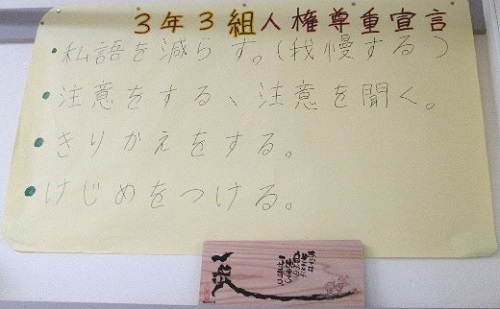 3年3組人権尊重宣言
・私語を減らす。(我慢する)
・注意をする、注意を聞く。
・きりかえをする。
・けじめをつける。